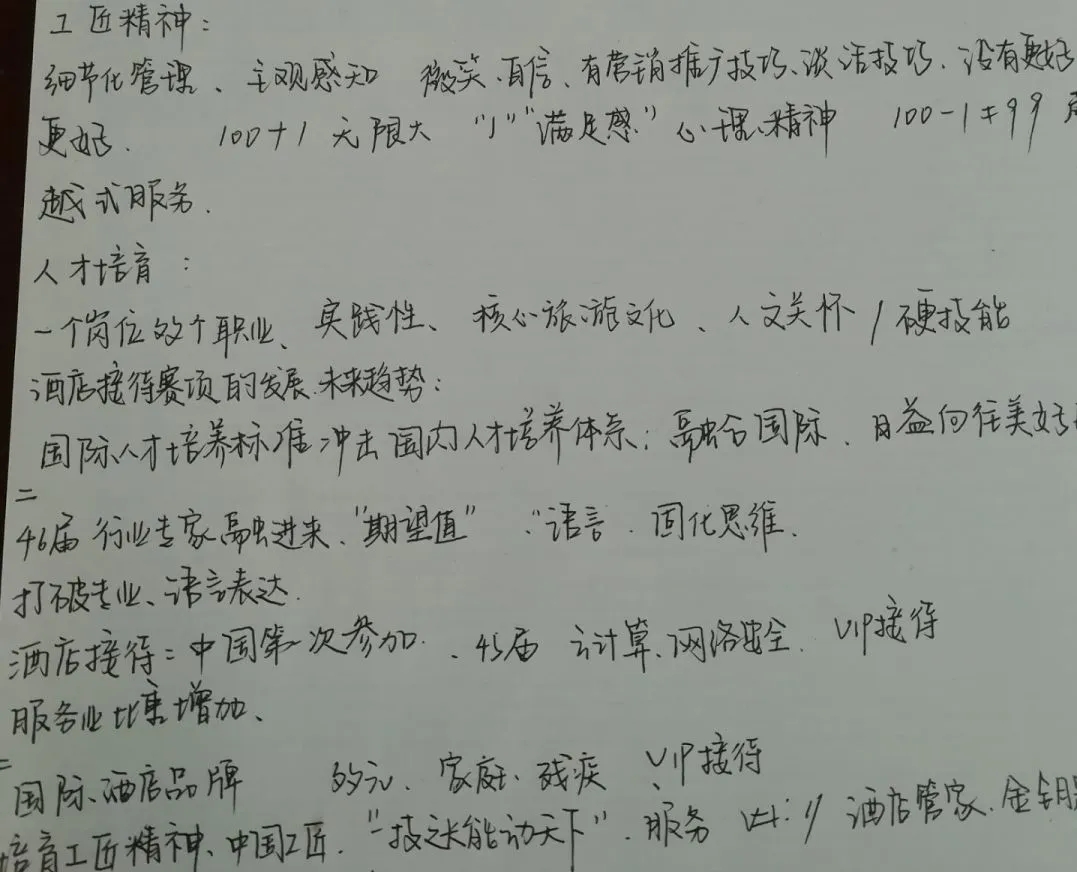 工匠精神：
细节化管理、主观感知 微笑、自信、有营销推广技巧、谈话技巧、没有更好
更好. 100+1 无限大 "1" "满足感" 心理、精神 100-1≠99
越式服务.
人才培育：
一个岗位多个职业、实践性、核心旅游文化、人文关怀/硬技能
酒店接待赛项的发展.未来趋势：
国际人才培养标准冲击国内人才培养体系；融合国际、日益向往美好
二
46届 行业专家融进来、"期望值" "语言．固化思维.
打破专业、语言表达.
酒店接待：中国第一次参加、45届 云计算、网络安全. VIP接待
服务业比重增加、
国际、酒店品牌 多元、家庭、残疾、VIP接待
培育工匠精神、中国工匠. "技能动天下". 服务 酒店管家.金钥